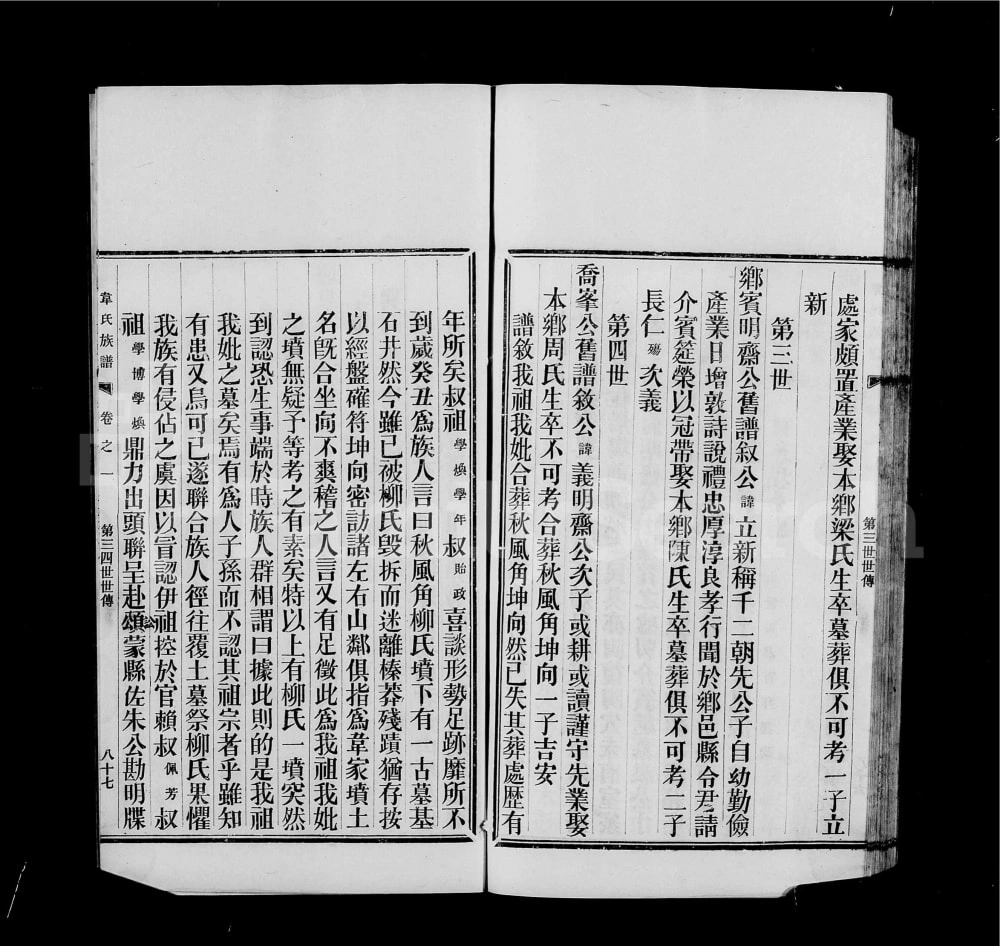 處家頗置產業娶本鄉梁氏生卒墓葬俱不可考一子立
新
第三世
鄉賓明齋公舊譜叙公諱立新稱千二朝先公子自幼勤儉
產業日增敦詩說禮忠厚淳良孝行聞於鄉邑縣令尹請
介賓筵榮以冠帶娶本鄉陳氏生卒墓葬俱不可考二子
長仁殤次義
第四世
喬峯公舊譜敘公諱義明齋公次子或耕或讀謹守先業娶
本鄉周氏生卒不可考合葬秋風角坤向一子吉安
譜敘我祖我妣合葬秋風角坤向然已失其葬處歷有
第三世世傳
年所矣叔祖學煥學年叔貽政喜談形勢足跡靡所不
到歲癸丑為族人言曰秋風角柳氏墳下有一古墓基
石井然今雖已被柳氏毀拆而迷離榛莽殘蹟猶存按
以經盤確符坤向密訪諸左右山鄰俱指為韋家墳土
名旣合坐向不爽稽之人言又有足徵此為我祖我妣
之墳無疑予等考之有素矣特以上有柳氏一墳突然
到認恐生事端於時族人群相謂曰據此則的是我祖
我妣之墓矣焉有為人子孫而不認其祖宗者乎雖知
有患又烏可已遂聯合族人徑往覆土墓祭柳氏果懼
我族有侵佔之虞因以冒認伊祖控於官賴叔佩芳叔
祖學博學煥鼎力出頭聯呈赴頌蒙縣佐朱公勘明牒
韋氏族譜 卷之一 第三四世世傳 八十七